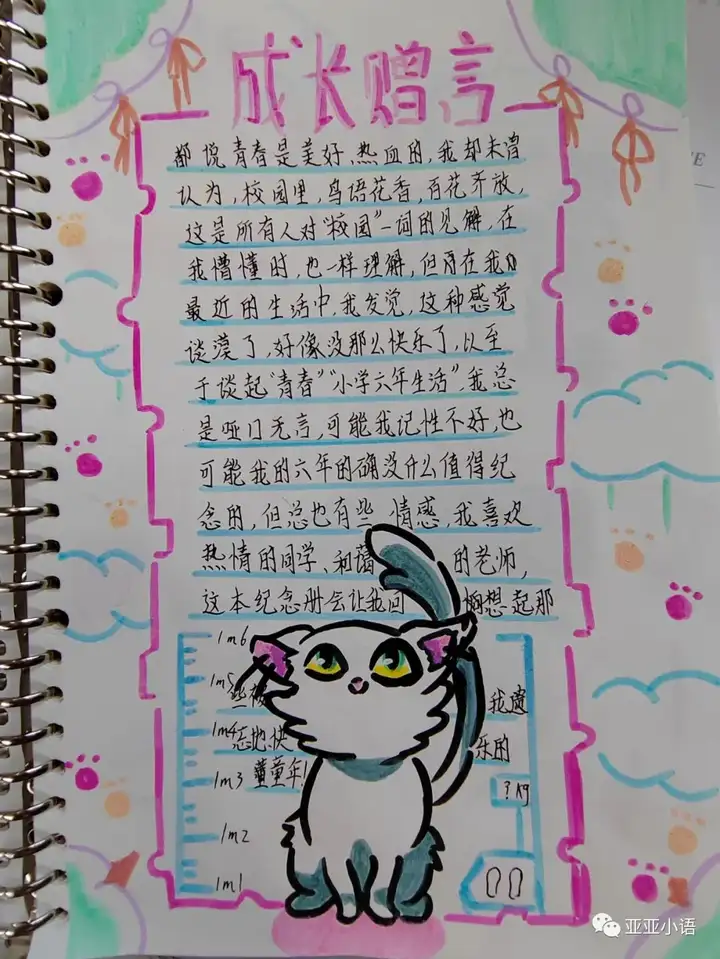 成长赠言
都说青春是美好、热血的,我却未曾
认为,校园里,鸟语花香,百花齐放,
这是所有人对"校园"一词的见解,在
我懵懂时,也一样理解,但是在我
最近的生活中,我发觉,这种感觉
淡漠了,好像没那么快乐了,以至
于谈起"青春""小学六年生活",我总
是哑口无言,可能我记性不好,也
可能我的六年的确没什么值得纪
念的,但总也有些 情感,我喜欢
热情的同学、和蔼 的老师,
这本纪念册会让我回 想起那
1m6
1m5 些被 我遗
1m4 忘地快 乐的
1m3 童年!
?kg
1m2
1m1 00
亚亚小语